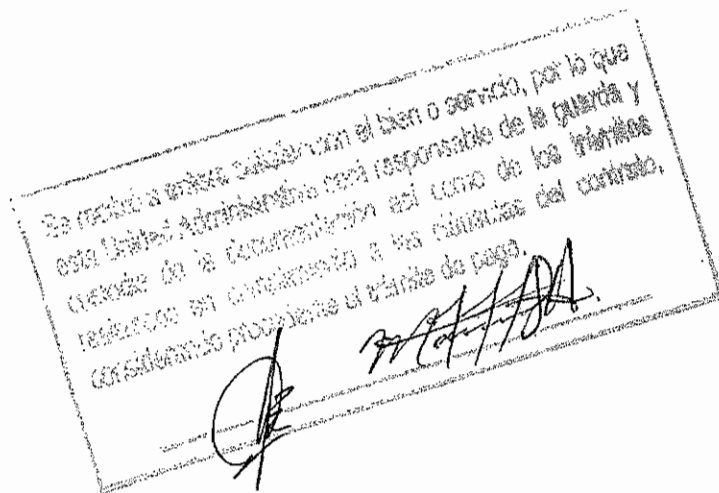 Se recibió a entera satisfacción el bien o servicio, por lo que
esta Unidad Administrativa será responsable de la guarda y
custodia de la documentación así como de los trámites
realizados en cumplimiento a las cláusulas del contrato,
considerando procedente el trámite de pago.